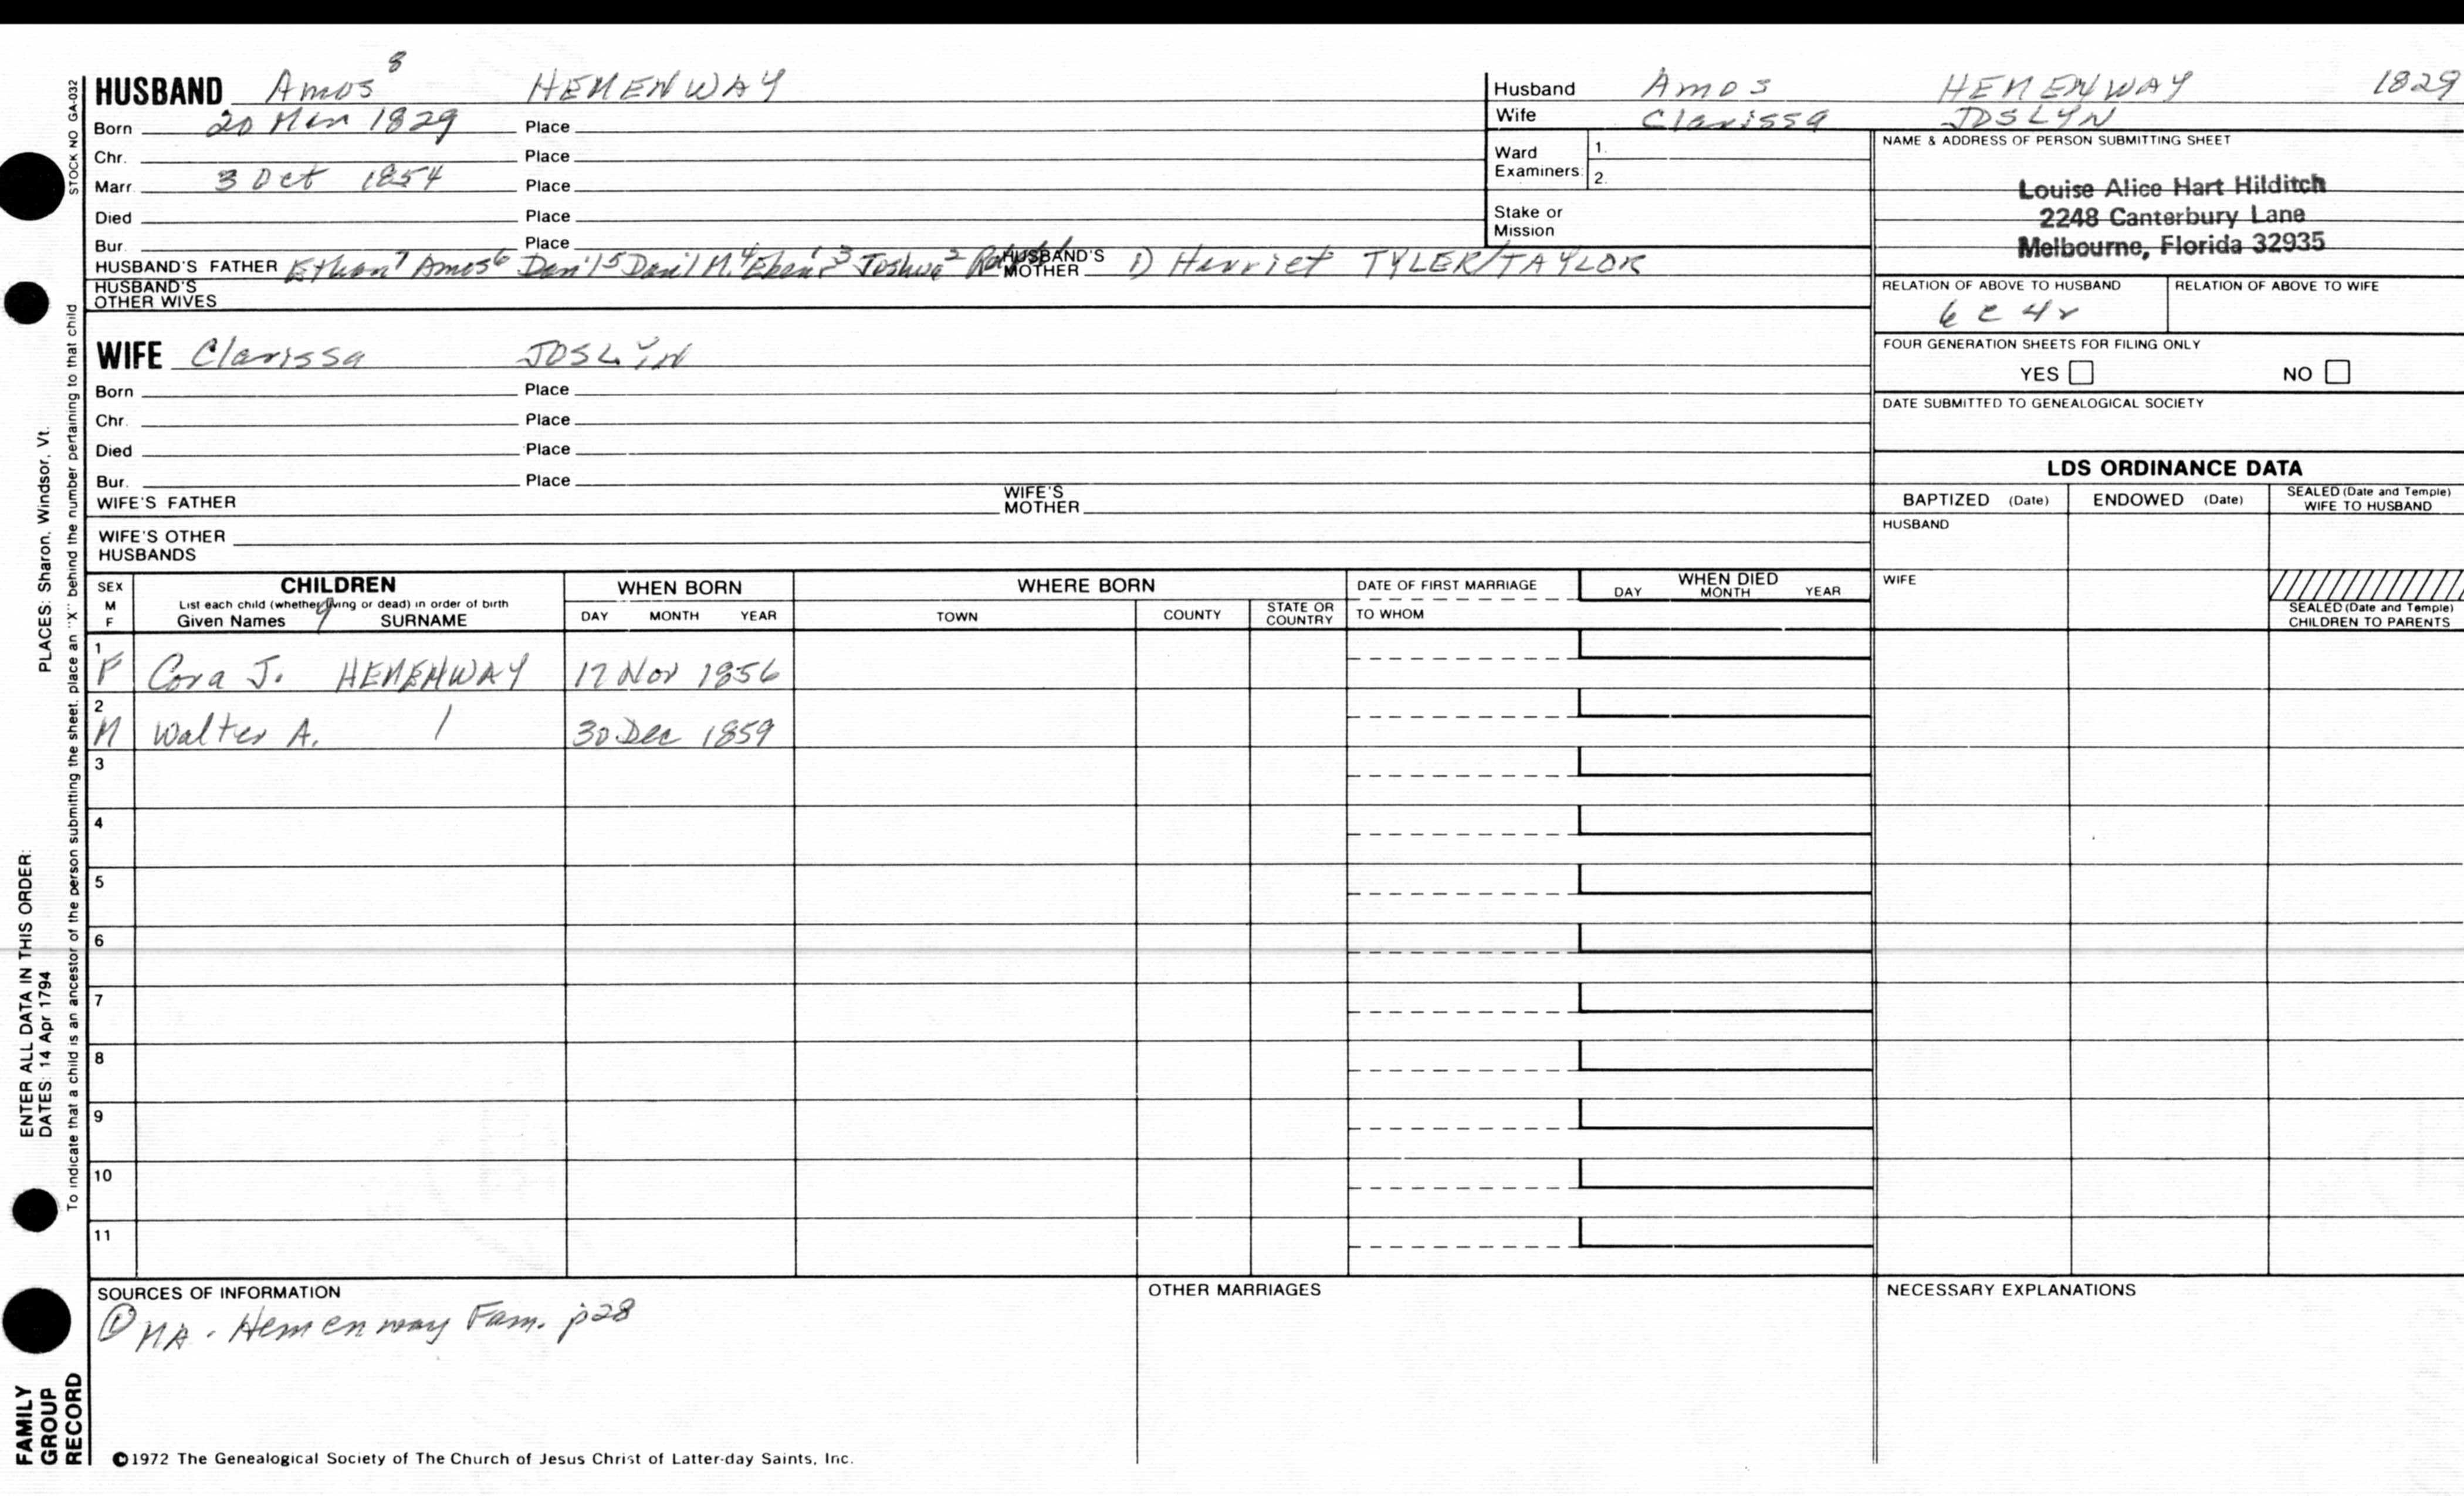 HUSBAND Amos⁸ HEMENWAY
Born 20 Mar 1829 Place
Chr. Place
Marr. 3 Oct 1854 Place
Died Place
Bur. Place
HUSBAND'S FATHER Ethan⁷ Amos⁶ Dan'l⁵ Dan'l M.⁴ Eben'r³ Joshua² HUSBAND'S MOTHER 1) Harriet TYLER/TAYLOR
HUSBAND'S OTHER WIVES
WIFE Clarissa JOSLYN
Born Place
Chr. Place
Died Place
Bur. Place
WIFE'S FATHER WIFE'S MOTHER
WIFE'S OTHER HUSBANDS
Husband Amos HEMENWAY 1829
Wife Clarissa JOSLYN
Ward Examiners: 1.
2.
Stake or Mission
NAME & ADDRESS OF PERSON SUBMITTING SHEET
Louise Alice Hart Hilditch
2248 Canterbury Lane
Melbourne, Florida 32935
RELATION OF ABOVE TO HUSBAND RELATION OF ABOVE TO WIFE
6 c 4r
FOUR GENERATION SHEETS FOR FILING ONLY
YES NO
DATE SUBMITTED TO GENEALOGICAL SOCIETY
LDS ORDINANCE DATA
BAPTIZED (Date) ENDOWED (Date) SEALED (Date and Temple) WIFE TO HUSBAND
HUSBAND
WIFE
SEALED (Date and Temple) CHILDREN TO PARENTS
SEX M F
CHILDREN
List each child (whether living or dead) in order of birth
Given Names SURNAME
WHEN BORN
DAY MONTH YEAR
WHERE BORN
TOWN COUNTY STATE OR COUNTRY
DATE OF FIRST MARRIAGE
TO WHOM
WHEN DIED
DAY MONTH YEAR
1 F Cora J. HEMENWAY 17 Nov 1856
2 M Walter A. / 30 Dec 1859
3
4
5
6
7
8
9
10
11
SOURCES OF INFORMATION
① MA. Hemenway Fam. p28
OTHER MARRIAGES
NECESSARY EXPLANATIONS
©1972 The Genealogical Society of The Church of Jesus Christ of Latter-day Saints, Inc.
STOCK NO GA-032
To indicate that a child is an ancestor of the person submitting the sheet, place an "X" behind the number pertaining to that child
ENTER ALL DATA IN THIS ORDER:
DATES: 14 Apr 1794 PLACES: Sharon, Windsor, Vt.
FAMILY
GROUP
RECORD